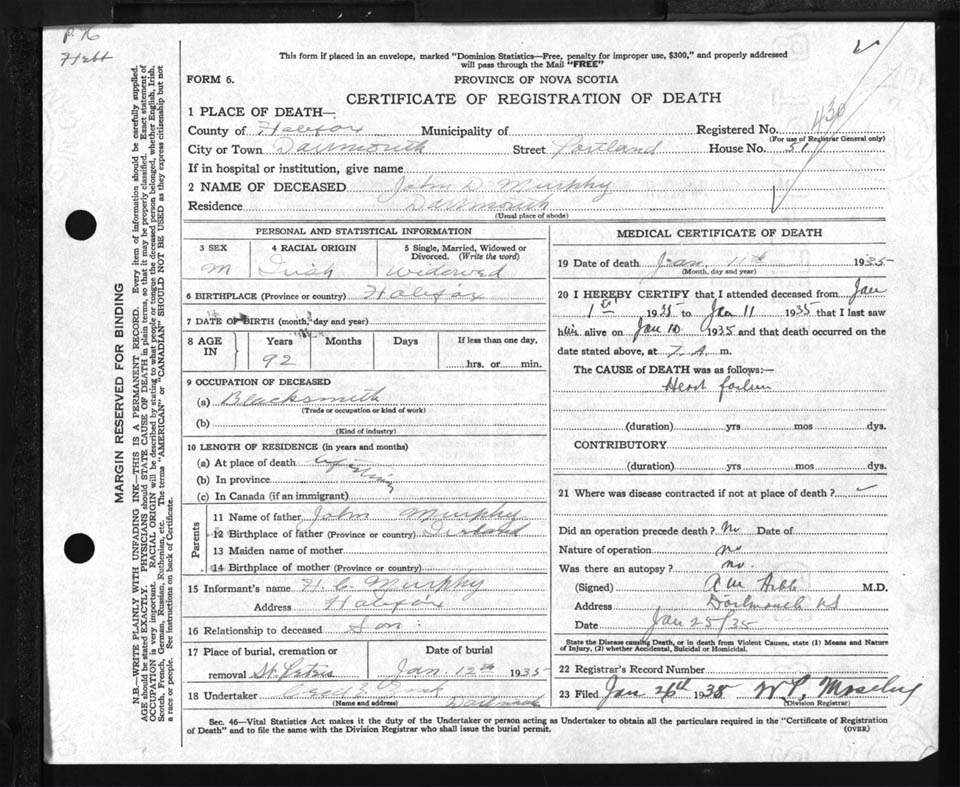 P. 76
This form if placed in an envelope, marked "Dominion Statistics—Free, penalty for improper use, $300," and properly addressed
will pass through the Mail "FREE"
FORM 6. PROVINCE OF NOVA SCOTIA
CERTIFICATE OF REGISTRATION OF DEATH
1 PLACE OF DEATH—
County of Halifax Municipality of Registered No. 430
(For use of Registrar General only)
City or Town Dartmouth Street Portland House No. 51
If in hospital or institution, give name
2 NAME OF DECEASED John D. Murphy
Residence Dartmouth
(Usual place of abode)
PERSONAL AND STATISTICAL INFORMATION
3 SEX 4 RACIAL ORIGIN 5 Single, Married, Widowed or
Divorced. (Write the word)
M Irish widowed
6 BIRTHPLACE (Province or country) Halifax
7 DATE OF BIRTH (month, day and year)
8 AGE IN Years Months Days If less than one day,
92 hrs. or min.
9 OCCUPATION OF DECEASED
(a) Blacksmith
(Trade or occupation or kind of work)
(b)
(Kind of industry)
10 LENGTH OF RESIDENCE (in years and months)
(a) At place of death
(b) In province
(c) In Canada (if an immigrant)
Parents
11 Name of father John Murphy
12 Birthplace of father (Province or country) Ireland
13 Maiden name of mother
14 Birthplace of mother (Province or country)
15 Informant's name H. C. Murphy
Address Halifax
16 Relationship to deceased Son
17 Place of burial, cremation or Date of burial
removal St. Peters Jan. 12th 1935
18 Undertaker
(Name and address) Dartmouth
MEDICAL CERTIFICATE OF DEATH
19 Date of death Jan. 11th 1935
(Month, day and year)
20 I HEREBY CERTIFY that I attended deceased from Jan
1st 1935 to Jan 11 1935 that I last saw
him alive on Jan 10 1935 and that death occurred on
date stated above, at 7. A. m.
The CAUSE of DEATH was as follows:—
Heart failure
(duration) yrs mos dys.
CONTRIBUTORY
(duration) yrs mos dys.
21 Where was disease contracted if not at place of death?
Did an operation precede death? No Date of
Nature of operation no
Was there an autopsy? no.
(Signed) M.D.
Address Dartmouth NS
Date Jan 25/35
State the Disease causing Death, or in death from Violent Causes, state (1) Means and Nature
of Injury, (2) whether Accidental, Suicidal or Homicidal.
22 Registrar's Record Number
23 Filed Jan 26th 1935
(Division Registrar)
Sec. 46—Vital Statistics Act makes it the duty of the Undertaker or person acting as Undertaker to obtain all the particulars required in the "Certificate of Registration
of Death" and to file the same with the Division Registrar who shall issue the burial permit. (OVER)
MARGIN RESERVED FOR BINDING
N.B.—WRITE PLAINLY WITH UNFADING INK—THIS IS A PERMANENT RECORD. Every item of information should be carefully supplied.
AGE should be stated EXACTLY. PHYSICIANS should STATE CAUSE OF DEATH in plain terms, so that it may be properly classified. Exact statement of
OCCUPATION is very important. RACIAL ORIGIN will be described by stating to what people or tongue the deceased person belonged, whether English, Irish,
Scotch, French, German, Russian, Ruthenian, etc. The terms "AMERICAN" or "CANADIAN" SHOULD NOT BE USED as they express citizenship but not
a race or people. See instructions on back of Certificate.